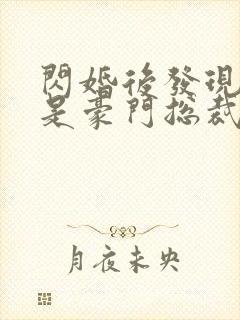 閃婚後發現
是豪門總裁
月夜未央